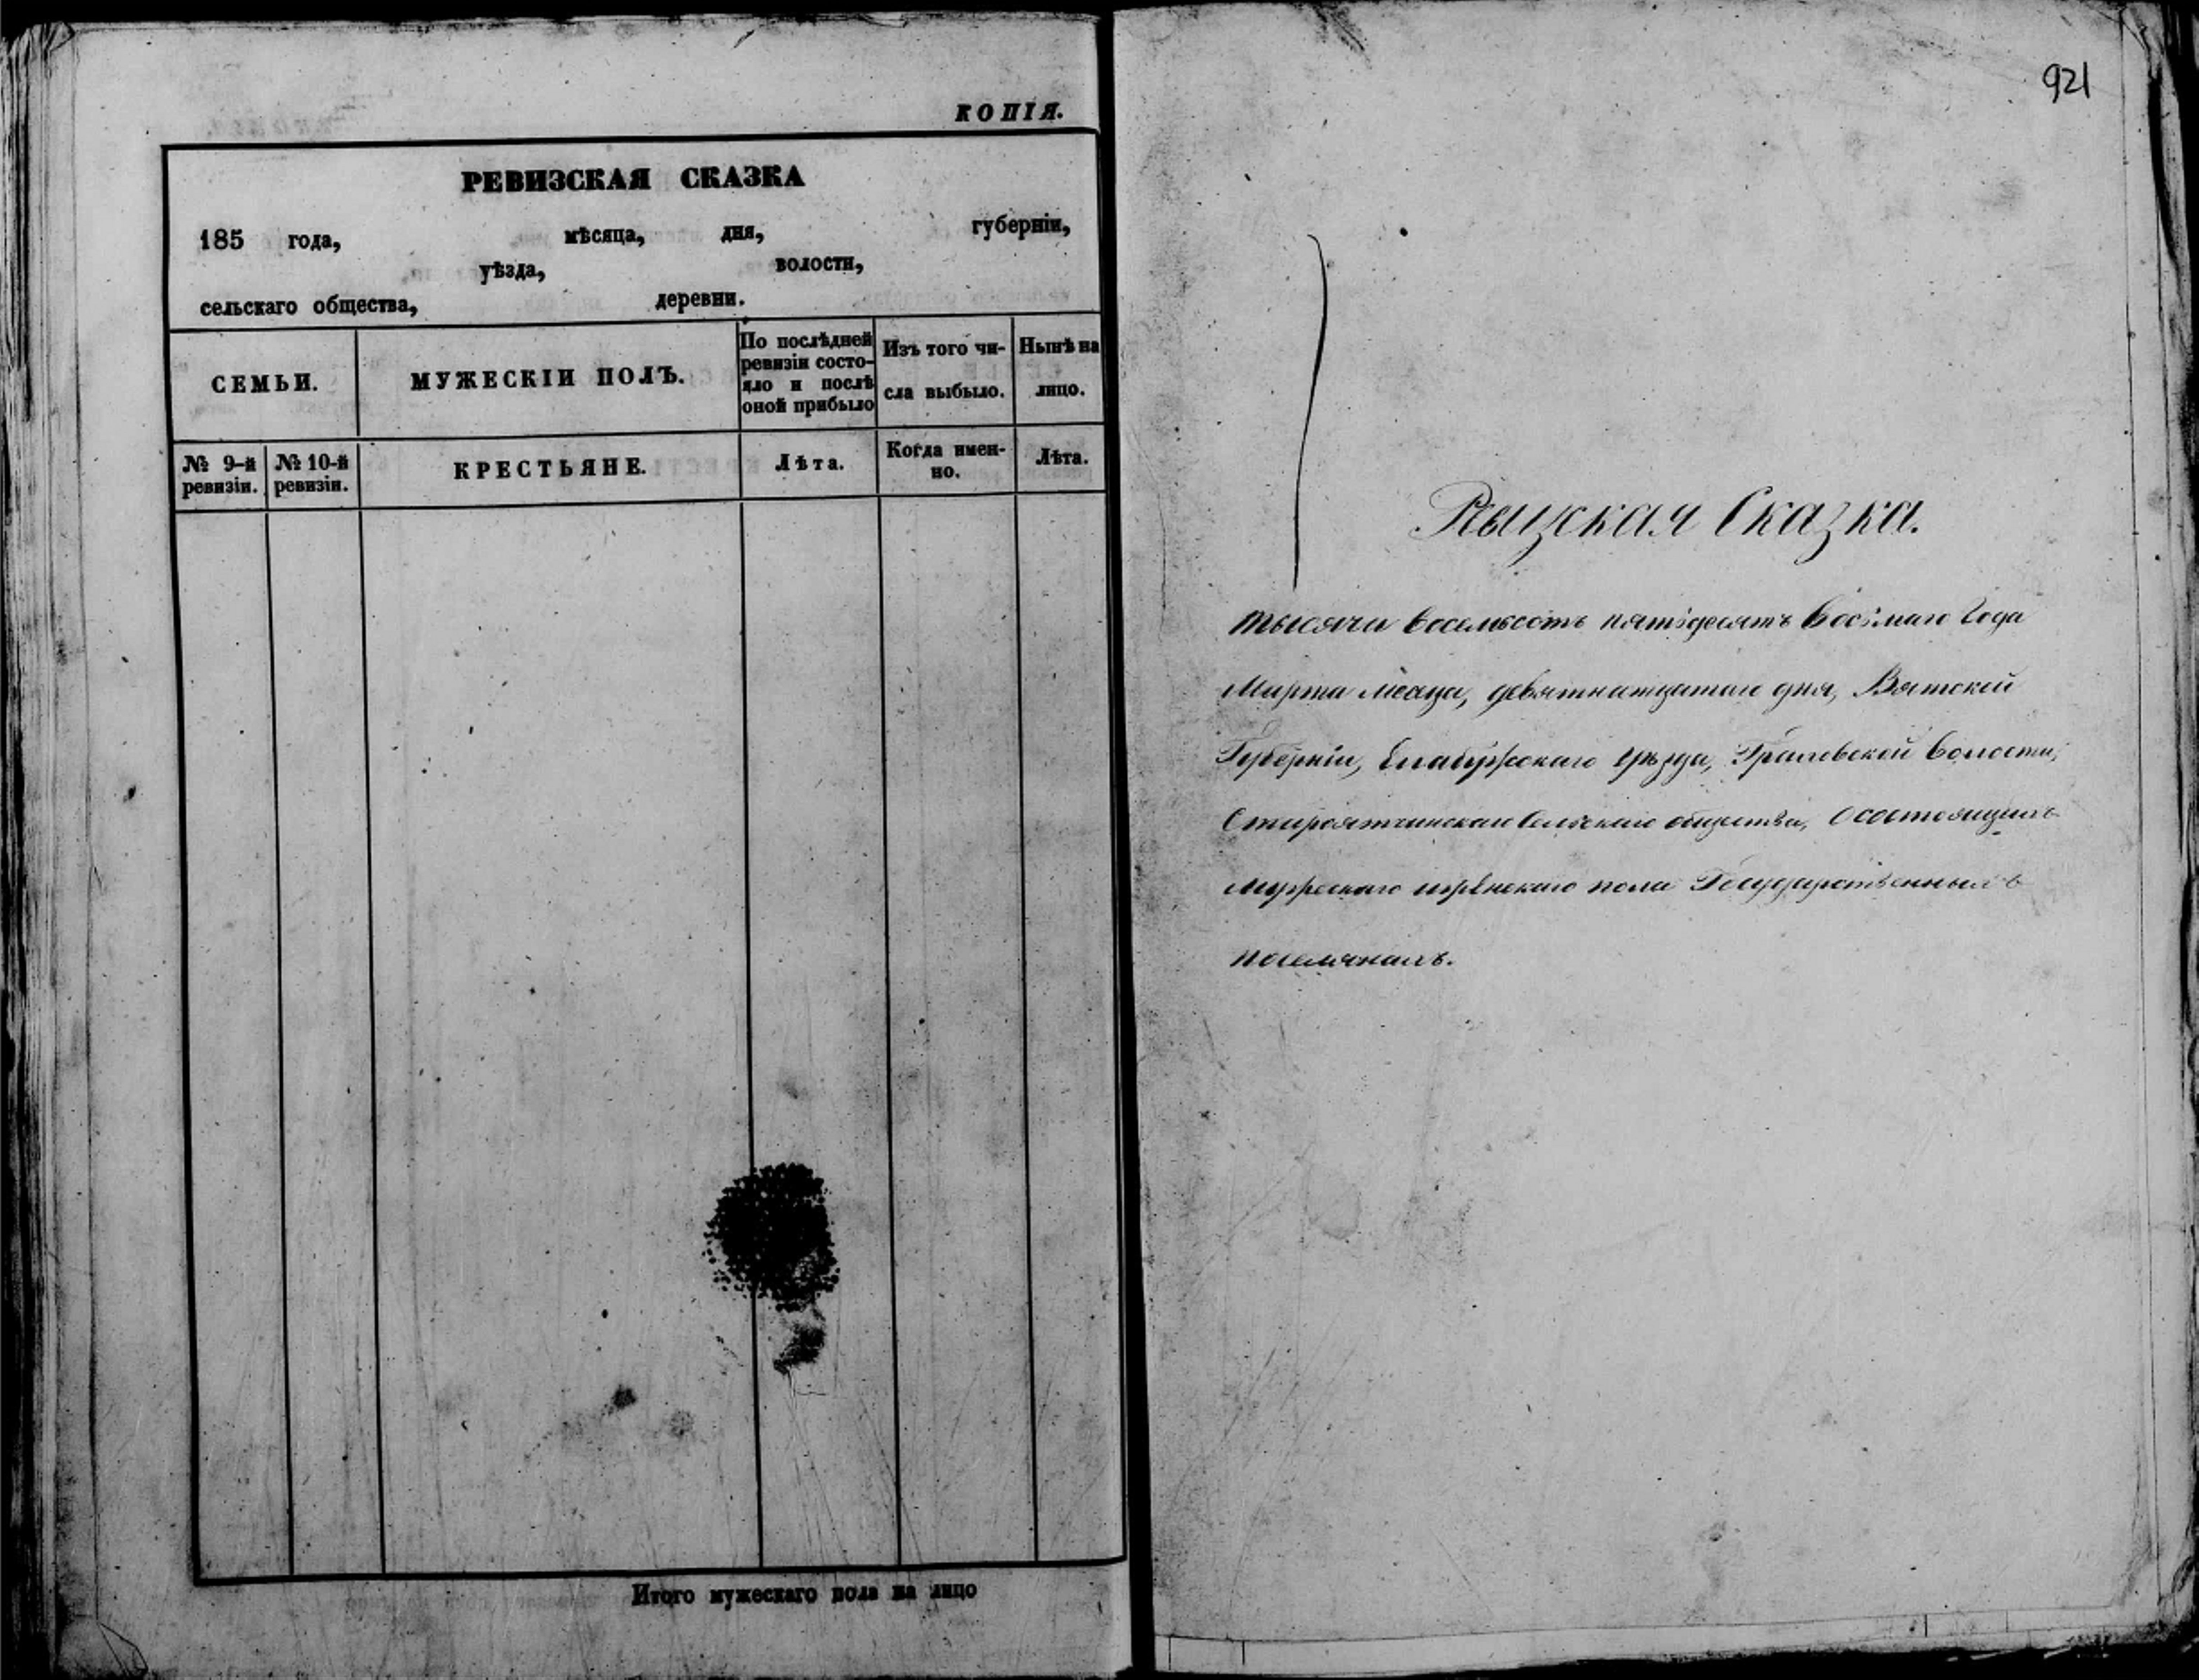 КОПІЯ.
РЕВИЗСКАЯ СКАЗКА
185 года, мѣсяца, дня, губерніи,
уѣзда, волости,
сельскаго общества, деревни.
СЕМЬИ.
МУЖЕСКІИ ПОЛЪ.
По послѣдней
ревизіи состо-
яло и послѣ
оной прибыло
Изъ того чи-
сла выбыло.
Нынѣ на
лицо.
№ 9-й
ревизіи.
№ 10-й
ревизіи.
КРЕСТЬЯНЕ.
Лѣта.
Когда имен-
но.
Лѣта.
Итого мужескаго пола на лицо
921
Сказка.
тысяча восемьсотъ пятьдесятъ восьмаго года
Марта месяца, девятнатцатаго дня, Вятской
Губерніи, Елабужскаго уѣзда, Граховской волости,
Староятчинскаго сельскаго общества, О состоящихъ
мужескаго и женскаго пола Государственныхъ
поселянахъ.